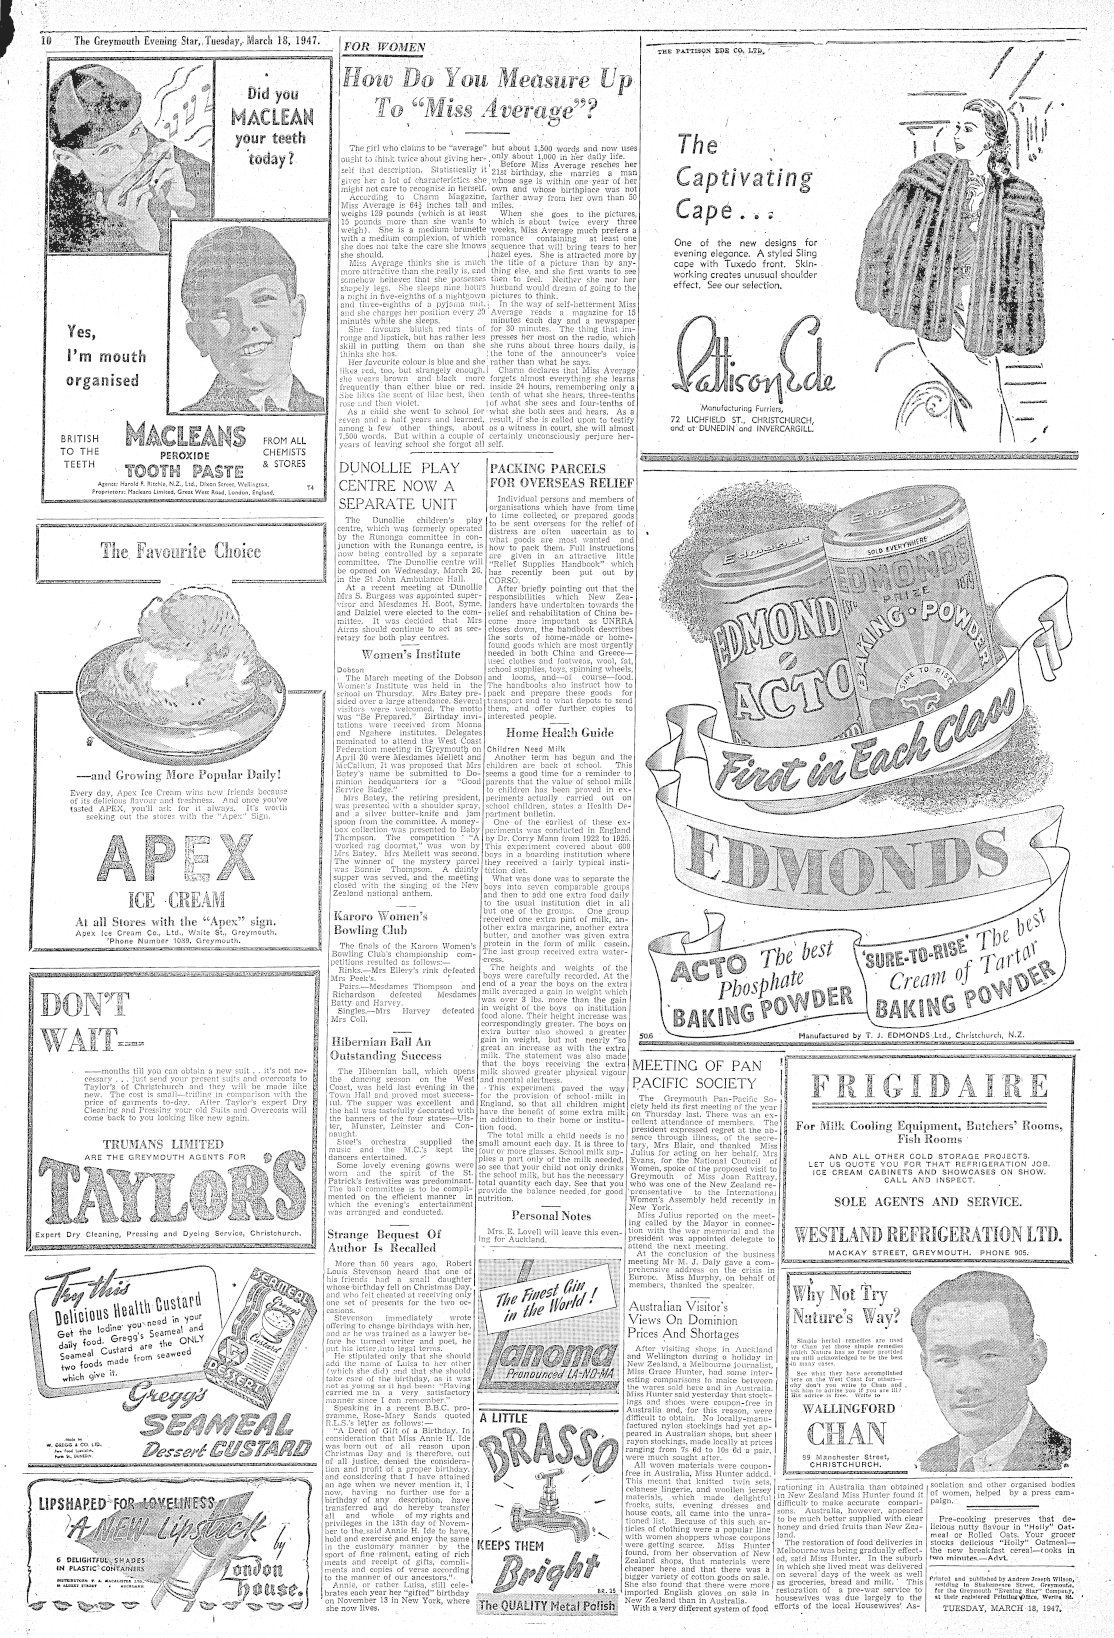 10 The Greymouth Evening Star, Tuesday, March 18, 1947.
Did you
MACLEAN
your teeth
today?
Yes,
I'm mouth
organised
BRITISH
TO THE
TEETH
MACLEANS
PEROXIDE
TOOTH PASTE
FROM ALL
CHEMISTS
& STORES
Agents: Harold F. Ritchie, N.Z., Ltd., Dixon Street, Wellington.
Proprietors: Macleans Limited, Great West Road, London, England.
T4
The Favourite Choice
—and Growing More Popular Daily!
Every day, Apex Ice Cream wins new friends because
of its delicious flavour and freshness. And once you've
tasted APEX, you'll ask for it always. It's worth
seeking out the stores with the "Apex" Sign.
APEX
ICE CREAM
At all Stores with the "Apex" sign.
Apex Ice Cream Co., Ltd., Waite St., Greymouth.
'Phone Number 1089, Greymouth.
DON'T
WAIT—
—months till you can obtain a new suit . . it's not ne-
cessary . . . just send your present suits and overcoats to
Taylor's of Christchurch and they will be made like
new. The cost is small—trifling in comparison with the
price of garments to-day. After Taylor's expert Dry
Cleaning and Pressing your old Suits and Overcoats will
come back to you looking like new again.
TRUMANS LIMITED
ARE THE GREYMOUTH AGENTS FOR
TAYLOR'S
Expert Dry Cleaning, Pressing and Dyeing Service, Christchurch.
Try this
Delicious Health Custard
Get the Iodine you need in your
daily food. Gregg's Seameal and
Seameal Custard are the ONLY
two foods made from seaweed
which give it.
SEAMEAL
Gregg's
DESSERT
Gregg's
SEAMEAL
Dessert CUSTARD
W. GREGG & CO. LTD.
LIPSHAPED FOR LOVELINESS
A NEW Lipstick
by
London
house.
6 DELIGHTFUL SHADES
IN PLASTIC CONTAINERS
FOR WOMEN
How Do You Measure Up
To "Miss Average"?
The girl who claims to be "average"
ought to think twice about giving her-
self that description. Statistically it
gives her a lot of characteristics she
might not care to recognise in herself.
According to Charm Magazine,
Miss Average is 64½ inches tall and
weighs 129 pounds (which is at least
15 pounds more than she wants to
weigh). She is a medium brunette
with a medium complexion, of which
she does not take the care she knows
she should.
Miss Average thinks she is much
more attractive than she really is, and
somehow believes that she possesses
shapely legs. She sleeps nine hours
a night in five-eighths of a nightgown
and three-eighths of a pyjama suit,
and she changes her position every 20
minutes while she sleeps.
She favours bluish red tints of
rouge and lipstick, but has rather less
skill in putting them on than she
thinks she has.
Her favourite colour is blue and she
likes red, too, but strangely enough,
she wears brown and black more
frequently than either blue or red.
She likes the scent of lilac best, then
rose and then violet.
As a child she went to school for
seven and a half years and learned,
among a few other things, about
7,500 words. But within a couple of
years of leaving school she forgot all
but about 1,500 words and now uses
only about 1,000 in her daily life.
Before Miss Average reaches her
21st birthday, she marries a man
whose age is within one year of her
own and whose birthplace was not
farther away from her own than 50
miles.
When she goes to the pictures,
which is about twice every three
weeks, Miss Average much prefers a
romance containing at least one
sequence that will bring tears to her
hazel eyes. She is attracted more by
the title of a picture than by any-
thing else, and she first wants to see
then to feel. Neither she nor her
husband would dream of going to the
pictures to think.
In the way of self-betterment Miss
Average reads a magazine for 15
minutes each day and a newspaper
for 30 minutes. The thing that im-
presses her most on the radio, which
she runs about three hours daily, is
the tone of the announcer's voice
rather than what he says.
Charm declares that Miss Average
forgets almost everything she learns
inside 24 hours, remembering only a
tenth of what she hears, three-tenths
of what she sees and four-tenths of
what she both sees and hears. As a
result, if she is called upon to testify
as a witness in court, she will almost
certainly unconsciously perjure her-
self.
DUNOLLIE PLAY
CENTRE NOW A
SEPARATE UNIT
The Dunollie children's play
centre, which was formerly operated
by the Runanga committee in con-
junction with the Runanga centre, is
now being controlled by a separate
committee. The Dunollie centre will
be opened on Wednesday, March 26,
in the St John Ambulance Hall.
At a recent meeting at Dunollie
Mrs S. Burgess was appointed super-
visor and Mesdames H. Boot, Syme,
and Dalziel were elected to the com-
mittee. It was decided that Mrs
Airns should continue to act as sec-
retary for both play centres.
Women's Institute
Dobson
The March meeting of the Dobson
Women's Institute was held in the
school on Thursday. Mrs Batey pre-
sided over a large attendance. Several
visitors were welcomed. The motto
was "Be Prepared." Birthday invi-
tations were received from Moana
and Ngahere institutes. Delegates
nominated to attend the West Coast
Federation meeting in Greymouth on
April 30 were Mesdames Mellett and
McCallum. It was proposed that Mrs
Batey's name be submitted to Do-
minion headquarters for a "Good
Service Badge."
Mrs Batey, the retiring president,
was presented with a shoulder spray,
and a silver butter-knife and jam
spoon from the committee. A money-
box collection was presented to Baby
Thompson. The competition "A
worked rag doormat," was won by
Mrs Batey. Mrs Mellett was second.
The winner of the mystery parcel
was Bonnie Thompson. A dainty
supper was served, and the meeting
closed with the singing of the New
Zealand national anthem.
Karoro Women's
Bowling Club
The finals of the Karoro Women's
Bowling Club's championship com-
petitions resulted as follows:—
Rinks.—Mrs Ellery's rink defeated
Mrs Peek's.
Pairs.—Mesdames Thompson and
Richardson defeated Mesdames
Batty and Harvey.
Singles.—Mrs Harvey defeated
Mrs Coll.
Hibernian Ball An
Outstanding Success
The Hibernian ball, which opens
the dancing season on the West
Coast, was held last evening in the
Town Hall and proved most success-
ful. The supper was excellent and
the hall was tastefully decorated with
the banners of the four states—Uls-
ter, Munster, Leinster and Con-
naught.
Steel's orchestra supplied the
music and the M.C.'s kept the
dancers entertained.
Some lovely evening gowns were
worn and the spirit of the St.
Patrick's festivities was predominant.
The ball committee is to be compli-
mented on the efficient manner in
which the evening's entertainment
was arranged and conducted.
Strange Bequest Of
Author Is Recalled
More than 50 years ago, Robert
Louis Stevenson heard that one of
his friends had a small daughter
whose birthday fell on Christmas Day,
and who felt cheated at receiving only
one set of presents for the two oc-
casions.
Stevenson immediately wrote
offering to change birthdays with her,
and as he was trained as a lawyer be-
fore he turned writer and poet, he
put his letter into legal terms.
He stipulated only that she should
add the name of Luisa to her other
(which she did) and that she should
take care of the birthday, as it was
not as young as it had been: "Having
carried me in a very satisfactory
manner since I can remember."
Speaking in a recent B.B.C. pro-
gramme, Rose-Mary Sands quoted
R.L.S.'s letter as follows:—
"A Deed of Gift of a Birthday. In
consideration that Miss Annie H. Ide
was born out of all reason upon
Christmas Day and is therefore, out
of all justice, denied the considera-
tion and profit of a proper birthday,
and considering that I have attained
an age when we never mention it, I
now, having no further use for a
birthday of any description, have
transferred and do hereby transfer
all and whole of my rights and
privileges in the 13th day of Novem-
ber to the said Annie H. Ide to have,
hold and exercise and enjoy the same
in the customary manner by the
sport of fine raiment, eating of rich
meats and receipt of gifts, compli-
ments and copies of verse according
to the manner of our ancestors."
Annie, or rather Luisa, still cele-
brates each year her "gifted" birthday
on November 13 in New York, where
she now lives.
PACKING PARCELS
FOR OVERSEAS RELIEF
Individual persons and members of
organisations which have from time
to time collected or prepared goods
to be sent overseas for the relief of
distress are often uncertain as to
what goods are most wanted and
how to pack them. Full instructions
are given in an attractive little
"Relief Supplies Handbook" which
has recently been put out by
CORSO.
After briefly pointing out that the
responsibilities which New Zea-
landers have undertaken towards the
relief and rehabilitation of China be-
come more important as UNRRA
closes down, the handbook describes
the sorts of home-made or home-
found goods which are most urgently
needed in both China and Greece—
used clothes and footwear, wool, fat,
school supplies, toys, spinning wheels,
and looms, and—of course—food.
The handbooks also instruct how to
pack and prepare these goods for
transport and to what depots to send
them, and offer further copies to
interested people.
Home Health Guide
Children Need Milk
Another term has begun and the
children are back at school. This
seems a good time for a reminder to
parents that the value of school milk
to children has been proved in ex-
periments actually carried out on
school children, states a Health De-
partment bulletin.
One of the earliest of these ex-
periments was conducted in England
by Dr. Corry Mann from 1922 to 1925.
This experiment covered about 600
boys in a boarding institution where
they received a fairly typical insti-
tution diet.
What was done was to separate the
boys into seven comparable groups
and then to add one extra food daily
to the usual institution diet in all
but one of the groups. One group
received one extra pint of milk, an-
other extra margarine, another extra
butter, and another was given extra
protein in the form of milk casein.
The last group received extra water-
cress.
The heights and weights of the
boys were carefully recorded. At the
end of a year the boys on the extra
milk averaged a gain in weight which
was over 3 lbs. more than the gain
in weight of the boys on institution
food alone. Their height increase was
correspondingly greater. The boys on
extra butter also showed a greater
gain in weight, but not nearly so
great an increase as with the extra
milk. The statement was also made
that the boys receiving the extra
milk showed greater physical vigour
and mental alertness.
This experiment paved the way
for the provision of school milk in
England, so that all children might
have the benefit of some extra milk
in addition to their home or institu-
tion food.
The total milk a child needs is no
small amount each day. It is three to
four or more glasses. School milk sup-
plies a part only of the milk needed,
so see that your child not only drinks
the school milk, but has the necessary
total quantity every day. See that you
provide the balance needed for good
nutrition.
Personal Notes
Mrs. E. Lovell will leave this even-
ing for Auckland.
The Finest Gin
in the World!
Lanoma
Pronounced LA-NO-MA
A LITTLE
BRASSO
KEEPS THEM
Bright
BR. 25
The QUALITY Metal Polish
THE PATTISON EDE CO. LTD.
The
Captivating
Cape . . .
One of the new designs for
evening elegance. A styled Sling
cape with Tuxedo front. Skin-
working creates unusual shoulder
effect. See our selection.
Pattison Ede
Manufacturing Furriers,
72 LICHFIELD ST., CHRISTCHURCH,
and at DUNEDIN and INVERCARGILL.
Edmonds
EDMONDS
ACTO
SOLD EVERYWHERE
EDMONDS
PRIZE
1879
BAKING POWDER
SURE TO RISE
First in Each Class
EDMONDS
ACTO The best
Phosphate
BAKING POWDER
'SURE-TO-RISE' The best
Cream of Tartar
BAKING POWDER
506
Manufactured by T. J. EDMONDS Ltd., Christchurch, N.Z.
MEETING OF PAN
PACIFIC SOCIETY
The Greymouth Pan-Pacific So-
ciety held its first meeting of the year
on Thursday last. There was an ex-
cellent attendance of members. The
president expressed regret at the ab-
sence through illness, of the secre-
tary, Mrs Blair, and thanked Miss
Julius for acting on her behalf. Mrs
Evans, for the National Council of
Women, spoke of the proposed visit to
Greymouth of Miss Joan Rattray,
who was one of the New Zealand re-
presentative to the International
Women's Assembly held recently in
New York.
Miss Julius reported on the meet-
ing called by the Mayor in connec-
tion with the war memorial and the
president was appointed delegate to
attend the next meeting.
At the conclusion of the business
meeting Mr M. J. Daly gave a com-
prehensive address on the crisis in
Europe. Miss Murphy, on behalf of
members, thanked the speaker.
Australian Visitor's
Views On Dominion
Prices And Shortages
After visiting shops in Auckland
and Wellington during a holiday in
New Zealand, a Melbourne journalist,
Miss Grace Hunter, had some inter-
esting comparisons to make between
the wares said here and in Australia.
Miss Hunter said yesterday that stock-
ings and shoes were coupon-free in
Australia and, for this reason, were
difficult to obtain. No locally-manu-
factured nylon stockings had yet ap-
peared in Australian shops, but sheer
rayon stockings, made locally at prices
ranging from 7s 6d to 10s 6d a pair,
were much sought after.
All woven materials were coupon-
free in Australia, Miss Hunter added.
This meant that knitted twin sets,
celanese lingerie, and woollen jersey
materials, which made delightful
frocks, suits, evening dresses and
house coats, all came into the unra-
tioned list. Because of this such ar-
ticles of clothing were a popular line
with women shoppers whose coupons
were getting scarce. Miss Hunter
found, from her observation of New
Zealand shops, that materials were
cheaper here and that there was a
bigger variety of cotton goods on sale.
She also found that there were more
imported English gloves on sale in
New Zealand than in Australia.
With a very different system of food
rationing in Australia than obtained
in New Zealand Miss Hunter found it
difficult to make accurate compari-
sons. Australia, however, appeared
to be much better supplied with clear
honey and dried fruits than New Zea-
land.
The restoration of food deliveries in
Melbourne was being gradually effect-
ed, said Miss Hunter. In the suburb
in which she lived meat was delivered
on several days of the week as well
as groceries, bread and milk. This
restoration of a pre-war service to
housewives was due largely to the
efforts of the local Housewives' As-
sociation and other organised bodies
of women, helped by a press cam-
paign.
Pre-cooking preserves that de-
licious nutty flavour in "Holly" Oat-
meal or Rolled Oats. Your grocer
stocks delicious "Holly" Oatmeal—
the new breakfast cereal—cooks in
two minutes.—Advt.
Printed and published by Andrew Joseph Wilson,
residing in Shakespeare Street, Greymouth,
for the Greymouth "Evening Star" Company,
at their registered Printing Office, Werita St.
TUESDAY, MARCH 18, 1947.
FRIGIDAIRE
For Milk Cooling Equipment, Butchers' Rooms,
Fish Rooms
AND ALL OTHER COLD STORAGE PROJECTS.
LET US QUOTE YOU FOR THAT REFRIGERATION JOB.
ICE CREAM CABINETS AND SHOWCASES ON SHOW.
CALL AND INSPECT.
SOLE AGENTS AND SERVICE.
WESTLAND REFRIGERATION LTD.
MACKAY STREET, GREYMOUTH. PHONE 905.
Why Not Try
Nature's Way?
Simple herbal remedies are used
by Chan yet those simple remedies
which Nature has so freely provided
are still acknowledged to be the best
in many cases.
See what they have accomplished
here on the West Coast for others—
why don't you write to Chan and
ask him to advise you if you are ill?
His advice is free. Write to
WALLINGFORD
CHAN
99 Manchester Street,
CHRISTCHURCH.